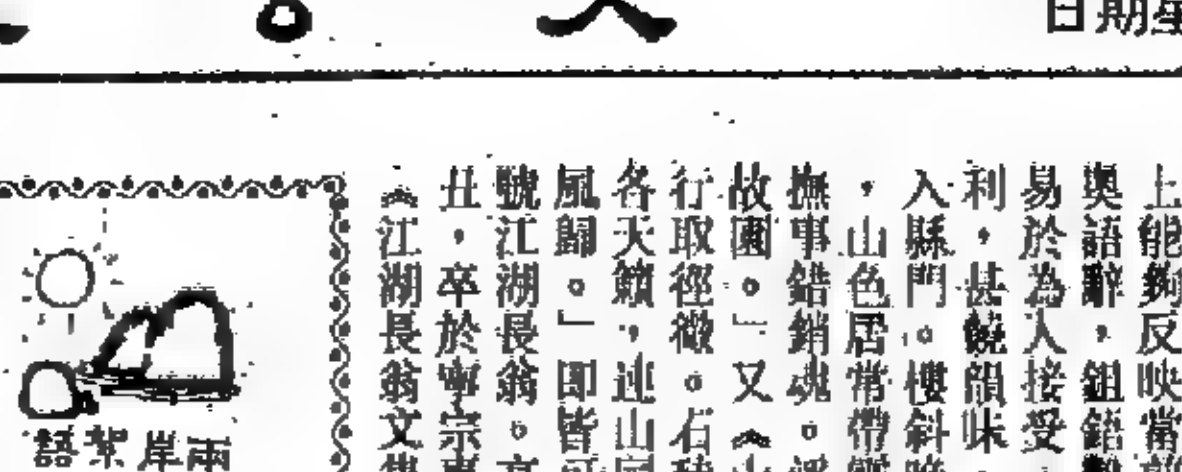 日期星
上能夠反映當
奧語辭，鉏鋙
易於為人接受
利，甚饒韻味。
入縣門。樓斜
，山色居常帶
撫事錯銷魂。
故園。」又《
行取徑微。石
各天籟，連山
風歸。」即皆
號江湖長翁。
丑，卒於寧宗
《江湖長翁文集
兩岸絮語